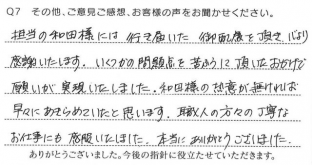 Q7 その他、ご意見ご感想、お客様の声をお聞かせください。
担当の和田様には 行き届いた 御配慮を頂き 心より
感謝いたします。いくつかの問題点を 苦ふうして頂いたおかげで
願いが 実現いたしました。和田様の 熱意が無ければ
早々に あきらめていたと思います。職人の方々の 丁寧な
お仕事にも 感服いたしました。本当に ありがとうございました。
ありがとうございました。今後の指針に役立たせていただきます。